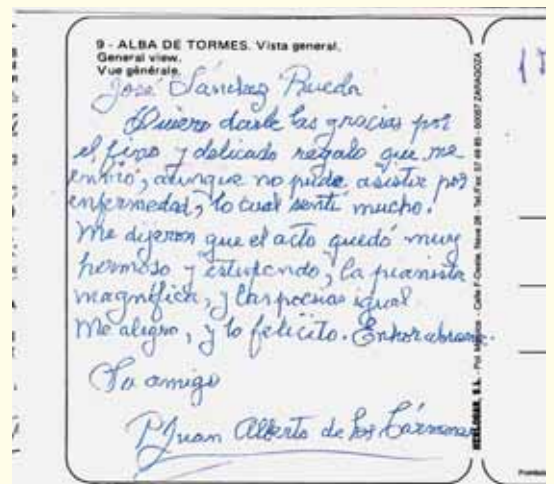 9 - ALBA DE TORMES. Vista general.
General view.
Vue générale.
José Sánchez Rueda
Quiero darle las gracias por
el fino y delicado regalo que me
envió, aunque no pude asistir por
enfermedad, lo cual sentí mucho.
Me dijeron que el acto quedó muy
hermoso y estupendo, la pianista
magnífica, y las poesías igual
Me alegro, y lo felicito. Enhorabuena.
Su amigo
P. Juan Alberto de los Cármenes
S.L. - Pol. - Calle F-Oeste, Nave 28 - Tel./Fax: 57 - ZARAGOZA